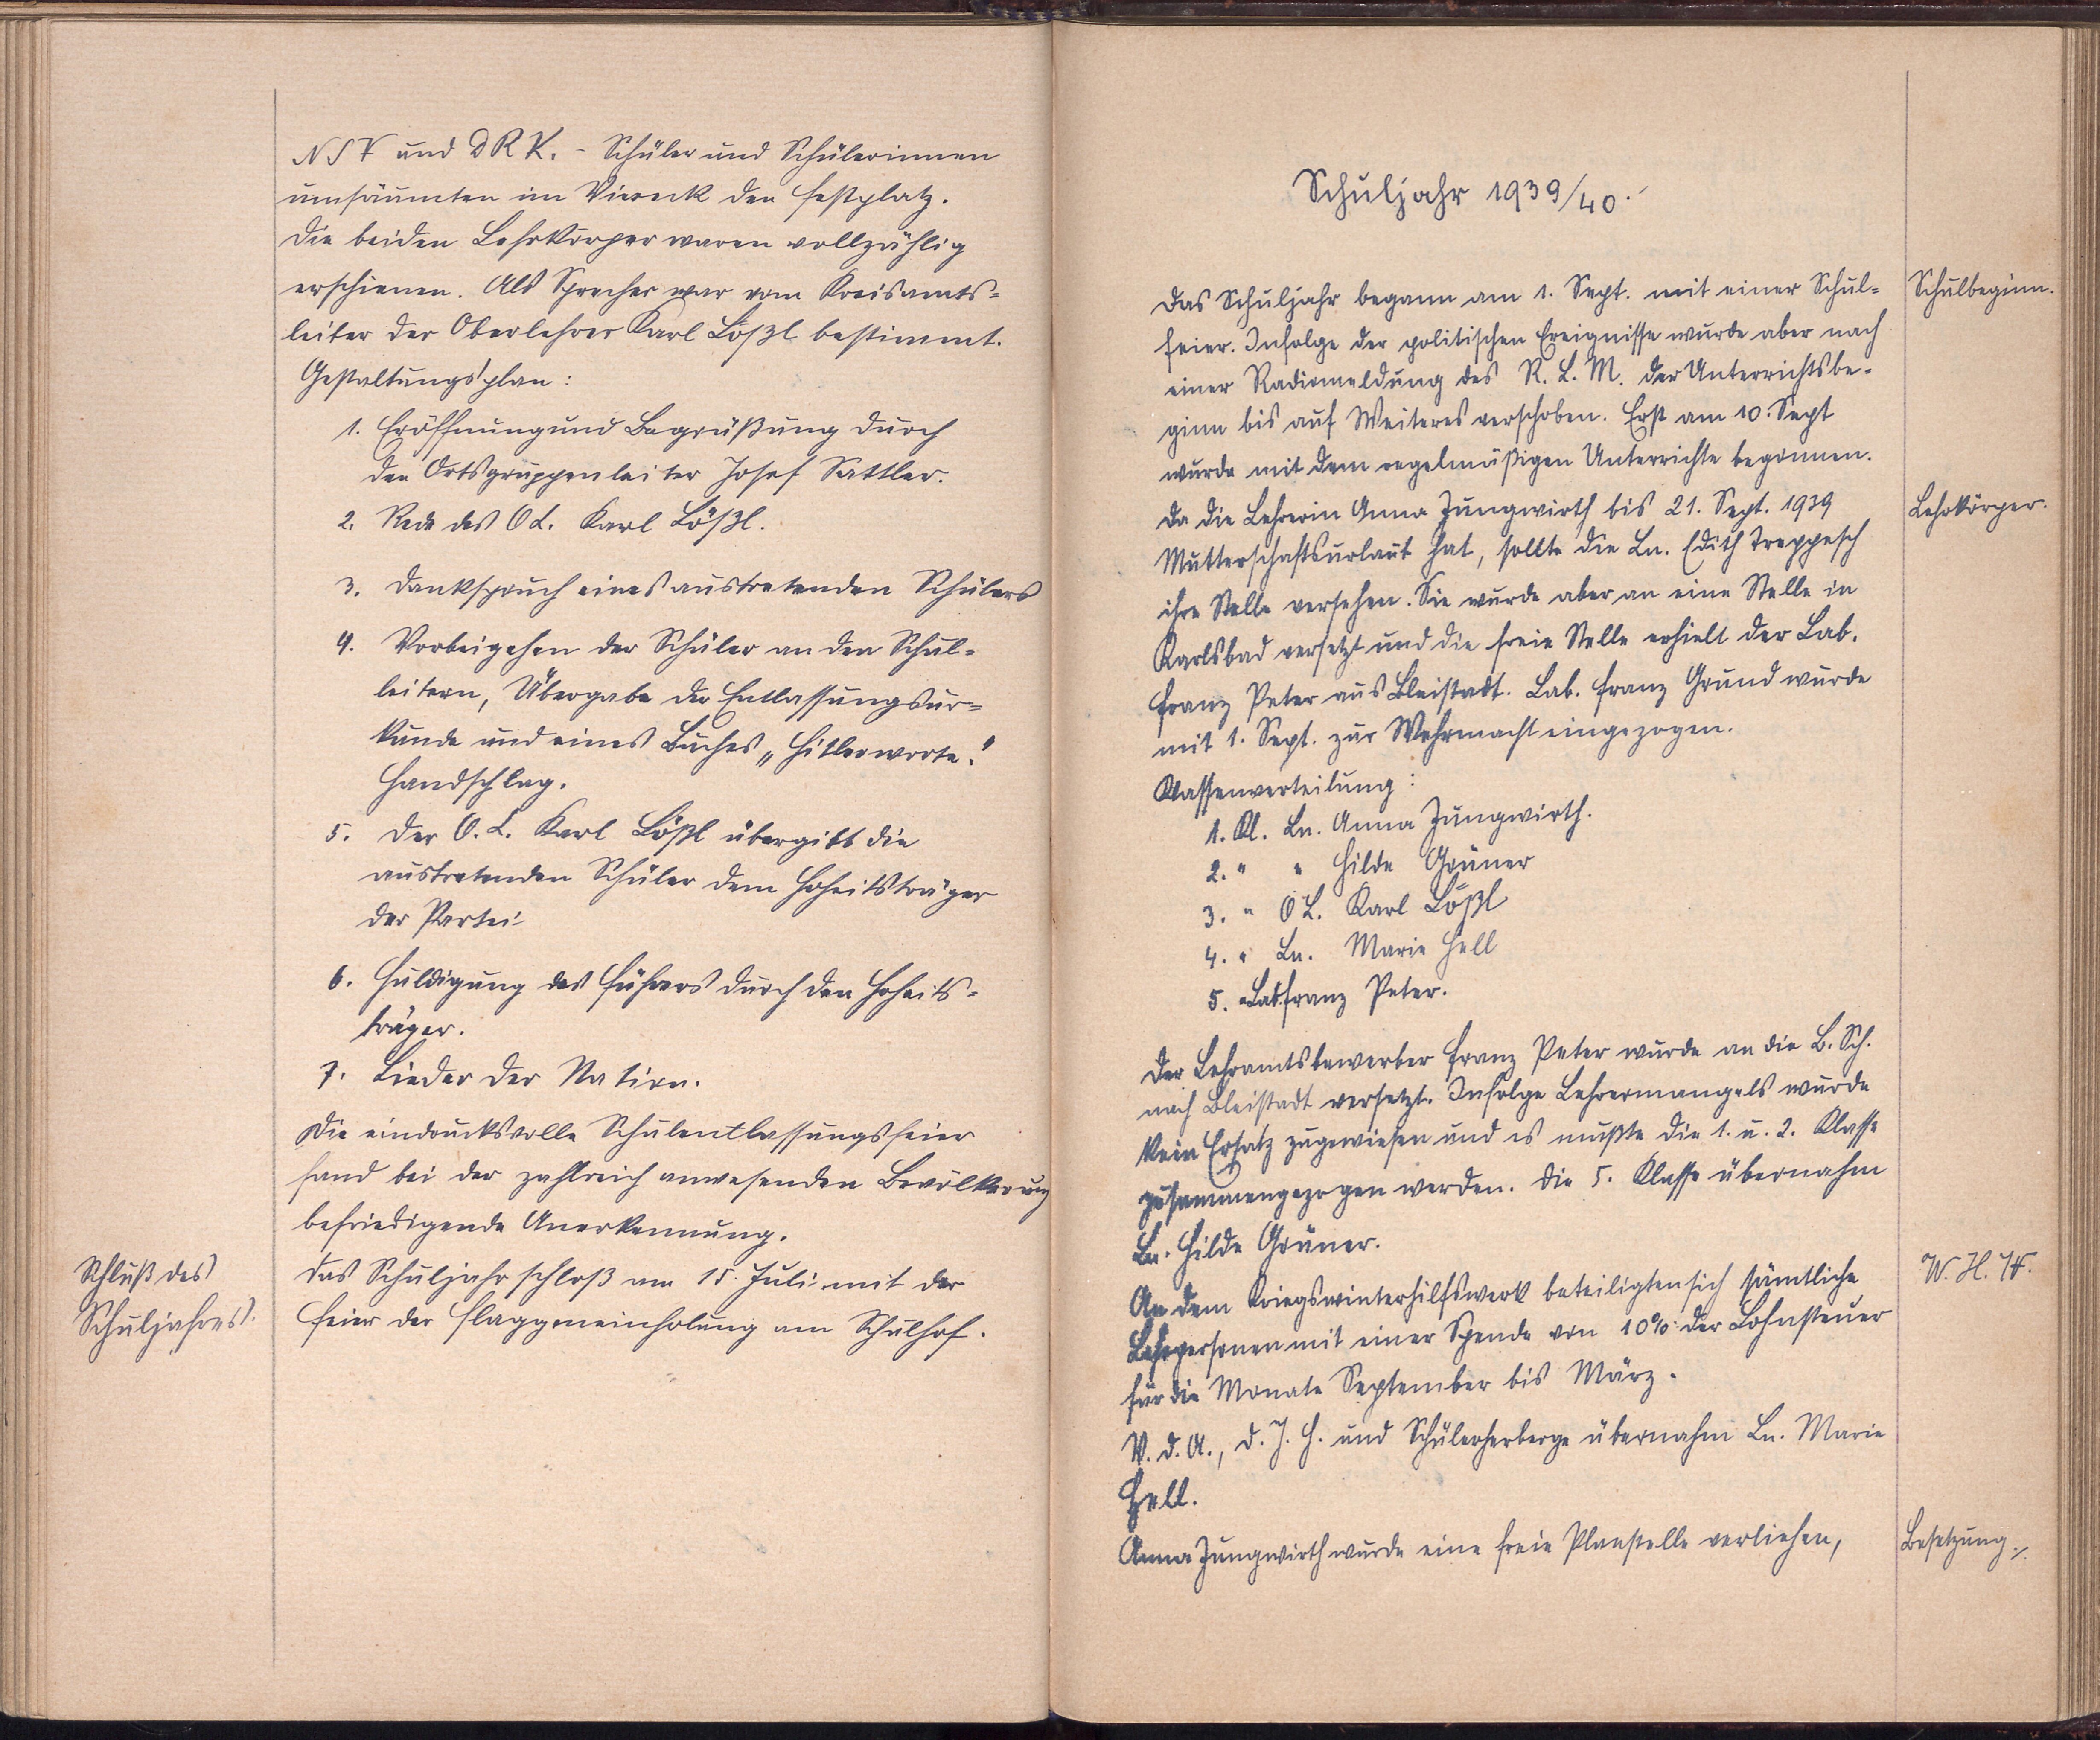 NSV und DRK. - Schüler und Schülerinnen
umsäumten im Viereck den Festplatz.
Die beiden Lehrkörper waren vollzählig
erschienen. Als Sprecher war vom Kreisamts-
leiter der Oberlehrer Karl Lößl bestimmt.
Gestaltungsplan:
1. Eröffnung und Begrüßung durch
den Ortsgruppenleiter Josef Sattler.
2. Rede des OL. Karl Lößl.
3. Dankspruch eines austretenden Schülers
4. Vorbeigehen der Schüler an den Schul-
leitern, Übergabe der Entlassungsur-
kunde und eines Buches „Hitlerworte."
Handschlag.
5. Der O.L. Karl Lößl übergibt die
austretenden Schüler dem Hoheitsträger
der Partei
6. Huldigung des Führers durch den Hoheits-
träger.
7. Lieder der Nation.
Die eindrucksvolle Schulentlassungsfeier
fand bei der zahlreich anwesenden Bevölkerung
befriedigende Anerkennung.
Schluß des
Schuljahres.
Das Schuljahr schloß am 15. Juli mit der
Feier der Flaggeneinholung am Schulhof.
Schuljahr 1939/40.
Schulbeginn.
Das Schuljahr begann am 1. Sept. mit einer Schul-
feier. Infolge der politischen Ereignisse wurde aber nach
einer Radiomeldung des R. L. M. der Unterrichtsbe-
ginn bis auf Weiteres verschoben. Erst am 10. Sept
wurde mit dem regelmäßigen Unterrichte begonnen.
Lehrkörper.
Da die Lehrerin Anna Jungwirth bis 21. Sept. 1939
Mutterschaftsurlaub hat, sollte die Ln. Edith Treppesch
ihre Stelle versehen. Sie wurde aber an eine Stelle in
Karlsbad versetzt und die freie Stelle erhielt der Lab.
Franz Peter aus Bleistadt. Lab. Franz Grund wurde
mit 1. Sept. zur Wehrmacht eingezogen.
Klassenverteilung:
1. Kl. Ln. Anna Jungwirth.
2. " " Hilde Grüner
3. " OL. Karl Lößl
4. " Ln. Marie Hell
5. " Lab. Franz Peter.
Der Lehramtsbewerber Franz Peter wurde an die B. Sch.
nach Bleistadt versetzt. Infolge Lehrermangels wurde
kein Ersatz zugewiesen und es mußte die 1. u. 2. Klasse
zusammengezogen werden. Die 5. Klasse übernahm
Ln. Hilde Grüner.
W. H. W.
An dem Kriegswinterhilfswerk beteiligten sich sämtliche
Lehrpersonen mit einer Spende von 10% der Lohnsteuer
für die Monate September bis März.
V. d. A., D. J. H. und Schülerherberge übernahm Ln. Marie
Hell.
Besetzung ./.
Anna Jungwirth wurde eine freie Planstelle verliehen,